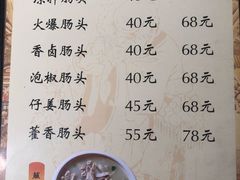 火爆肠头 40元 68元
香卤肠头 40元 68元
泡椒肠头 40元 68元
仔姜肠头 45元 68元
藿香肠头 55元 78元